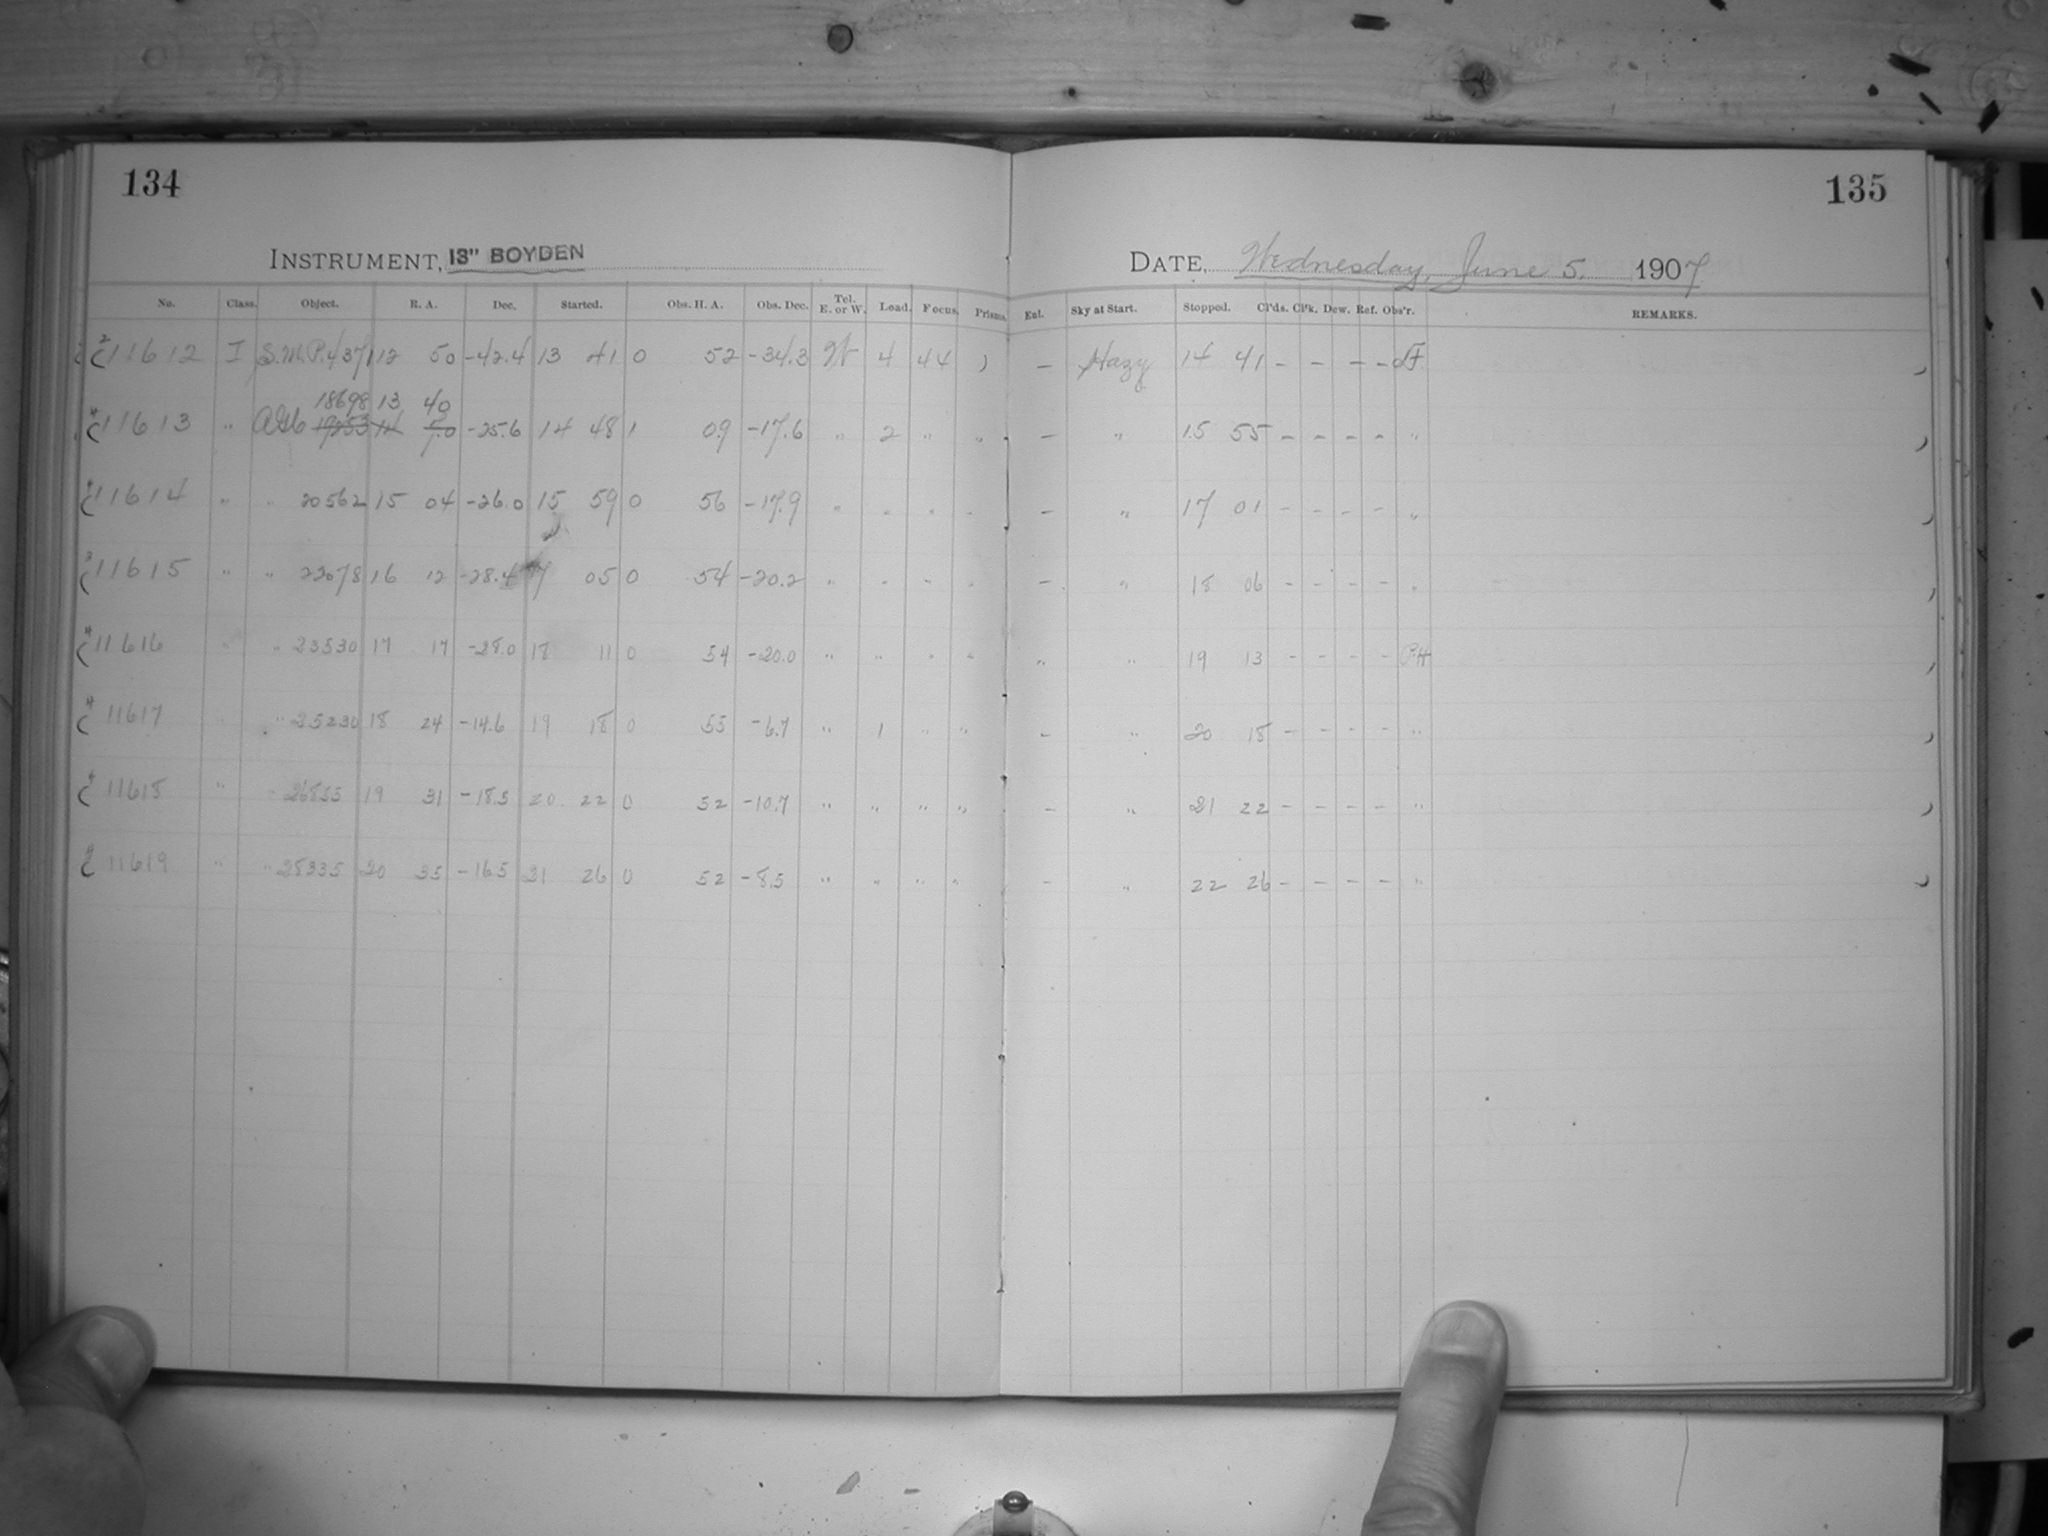 134
135
INSTRUMENT, 13" BOYDEN
DATE, Wednesday, June 5. 1907
No. Class. Object. R. A. Dec. Started. Obs. H. A. Obs. Dec. Tel. E. or W. Load. Focus. Prisms. Ent. Sky at Start. Stopped. Cl'ds. Cl'k. Dew. Ref. Obs'r. REMARKS.
11612 I 12 50 -42.4 13 41 0 52 -34.3 4 44 ) — Hazy 14 41 - - - -
18698 13 40
11613 " 19253 14 5.0 -25.6 14 48 1 09 -17.6 " 2 " " — " 15 55 - - - - "
11614 " " 20562 15 04 -26.0 15 59 0 56 -17.9 " " " " — " 17 01 - - - - "
11615 " " 22078 16 12 -28.4 17 05 0 54 -20.2 " " " " — " 18 06 - - - - "
11616 " " 23530 17 17 -28.0 18 11 0 54 -20.0 " " " " " " 19 13 - - - - PH
11617 " 25230 18 24 -14.6 19 18 0 53 -6.7 " 1 " " - " 20 18 - - - - "
11618 " 26855 19 31 -18.5 20 22 0 52 -10.7 " " " " — " 21 22 - - - - "
11619 " " 28335 20 35 -16.5 21 26 0 52 -8.5 " " " " - " 22 26 - - - - "